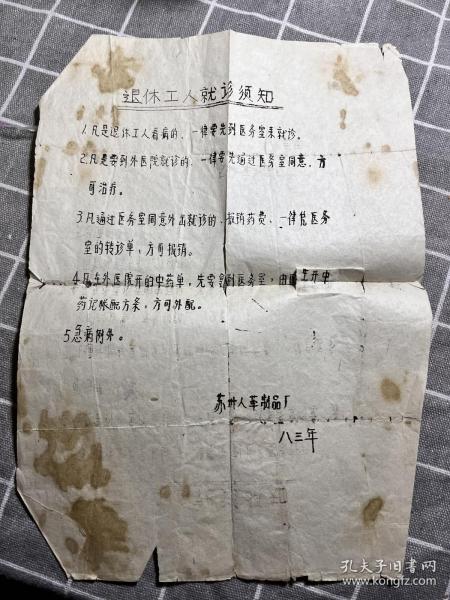 退休工人就诊须知
1.凡是退休工人看病的、一律要先到医务室来就诊。
2.凡是要到外医院就诊的、一律要先通过医务室同意、方
可治疗。
3.凡通过医务室同意外出就诊的、报销药费、一律凭医务
室的转诊单,方可报销。
4.凡在外医院开的中药单,先要拿到医务室,由 生开中
药记帐配方条,方可外配。
5.急病例外。
苏州人革制品厂
八三年
孔夫子旧书网
www.kongfz.com